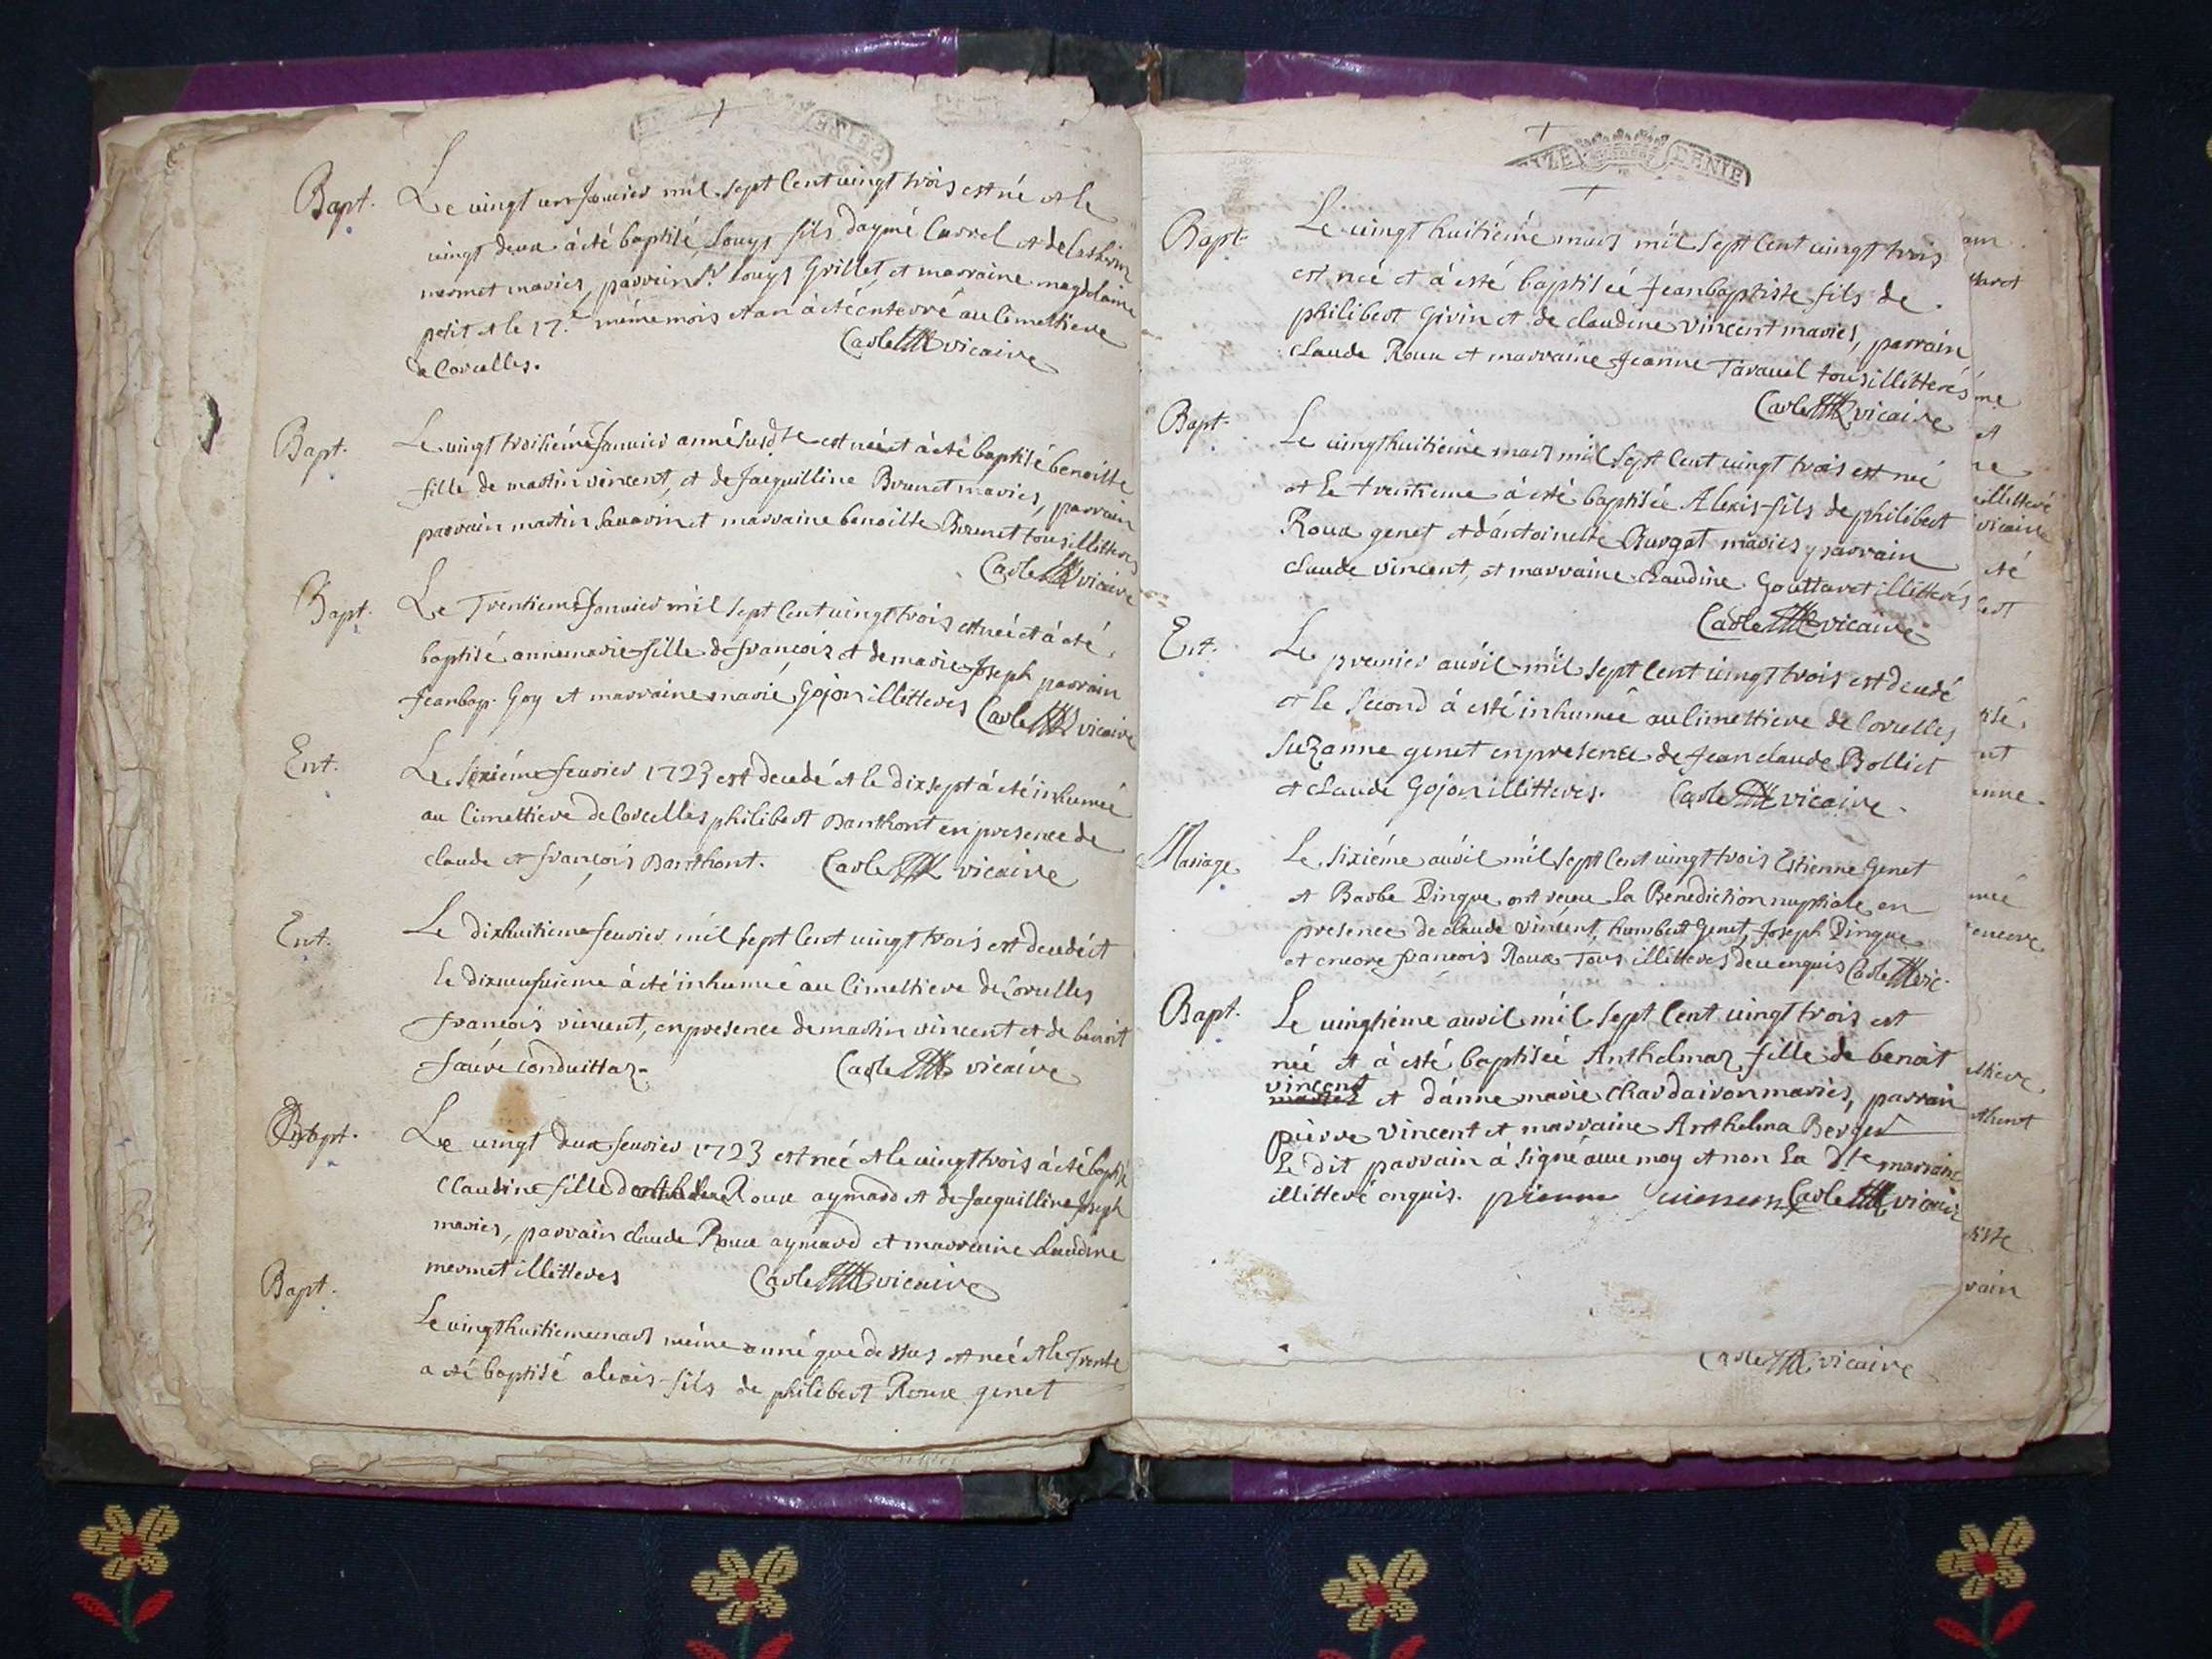 Bapt. Le vingt un Janvier mil sept Cent vingt trois est né et le
vingt deux à été baptisé Louys fils daymé Carrel et de
mermet mariés, parrain Sr. Louys Grillet, et marraine magdelaine
petit et le 27.e même mois et an à été enterré au Cimettiere
de Corcelles. Carle vicaire
Bapt. Le vingt troisiéme Janvier année susdte est née et à été baptisé benoitte
fille de martin vincent, et de Jacquilline Brunet mariés, parrain
parrain martin Savarin et marraine benoitte Brunet tous illitteres
Carle vicaire
Bapt. Le Trentieme Janvier mil sept Cent vingt trois est née et à été
baptisé annemarie fille de françois et de marie Joseph parrain
Jeanbap. Goy et marraine marie Gojon illitteres Carle vicaire
Ent. Le Sixiéme fevrier 1723 est decedé et le dixsept à été inhumé
au Cimettiere de Corcelles philibert Banthont en presence de
claude et françois Banthont. Carle vicaire
Ent. Le dixhuitieme fevrier mil sept Cent vingt trois est decedé et
le dixneufvieme à été inhumé au Cimettiere de Corcelles
françois vincent, en presence de martin vincent et de benoit
favre Conduittaz. Carle vicaire
Bapt. Le vingt deux fevrier 1723 est née et le vingt trois à été baptisé
Claudine fille Roux aymard et de Jacquilline Joseph
mariés, parrain claude Roux aymard et marraine claudine
mermet illitteres Carle vicaire
Bapt. Le vingthuitieme mars même année que dessus et née et le Trente
a été baptisé alexis fils de philibert Roux genet
IZE DENIE
Bapt. Le vingt huitiéme mars mil sept Cent vingt trois
est neé et à esté baptiseé Jeanbaptiste fils de
philibert Givin et de claudine vincent mariés, parrain
claude Roux et marraine Jeanne Taravel tous illitterés
Carle vicaire
Bapt. Le vingthuitiéme mars mil sept Cent vingt trois est neé
et le trentieme à esté baptiseé Alexis fils de philibert
Roux genet et d'antoinette Burgat mariés parrain
claude vincent, et marraine claudine Gouttaret illitterés
Carle vicaire
Ent. Le premier auvil mil sept Cent vingt trois est decedé
et le second à esté inhumeé au Cimettiere de Corcelles
Suzanne genet en presence de Jean claude Bolliet
et claude Gojon illitteres. Carle vicaire.
Mariage Le sixiéme auvil mil sept Cent vingt trois Estienne Genet
et Barbe Pingue ont receu la Benediction nuptiale en
presence de claude vincent, humbert Genet, Joseph Pingue
et encore françois Roux Tous illitteres de ce enquis Carle vic.
Bapt. Le vingtiéme auvil mil sept Cent vingt trois est
neé et à esté baptiseé Anthelmaz fille de benoit
vincent
et d'anne marie chardairon mariés, parrain
pierre vincent et marraine Anthelma Berger
Le dit parrain à signé avec moy et non la dte marraine
illitteré enquis. pierre Carle vicair
Carle vicaire